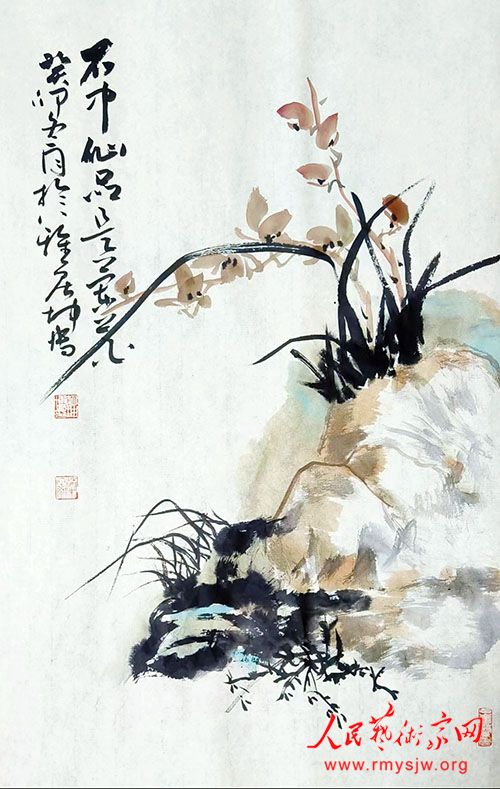 中仙品是蘭花
癸卯冬月於雅居坤
人民藝術家网
www.rmysjw.org